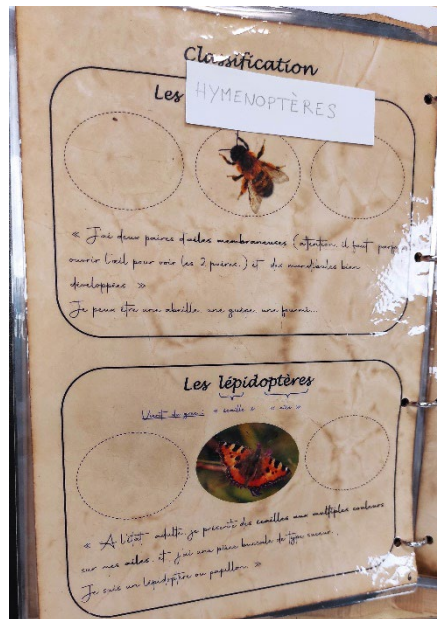 Classification
Les HYMENOPTÈRES
« J'ai deux paires d'ailes membraneuses (attention, il faut
ouvrir l'œil pour voir les 2 paires.) et des mandibules bien
développées. »
Je peux être une abeille, une guêpe, une fourmi...
Les lépidoptères
Vient du grec: « écaille » « aile »
« A l'état adulte, je présente des écailles aux multiples couleurs
sur mes ailes, et j'ai une pièce buccale de type suceur.
Je suis un lépidoptère ou papillon. »